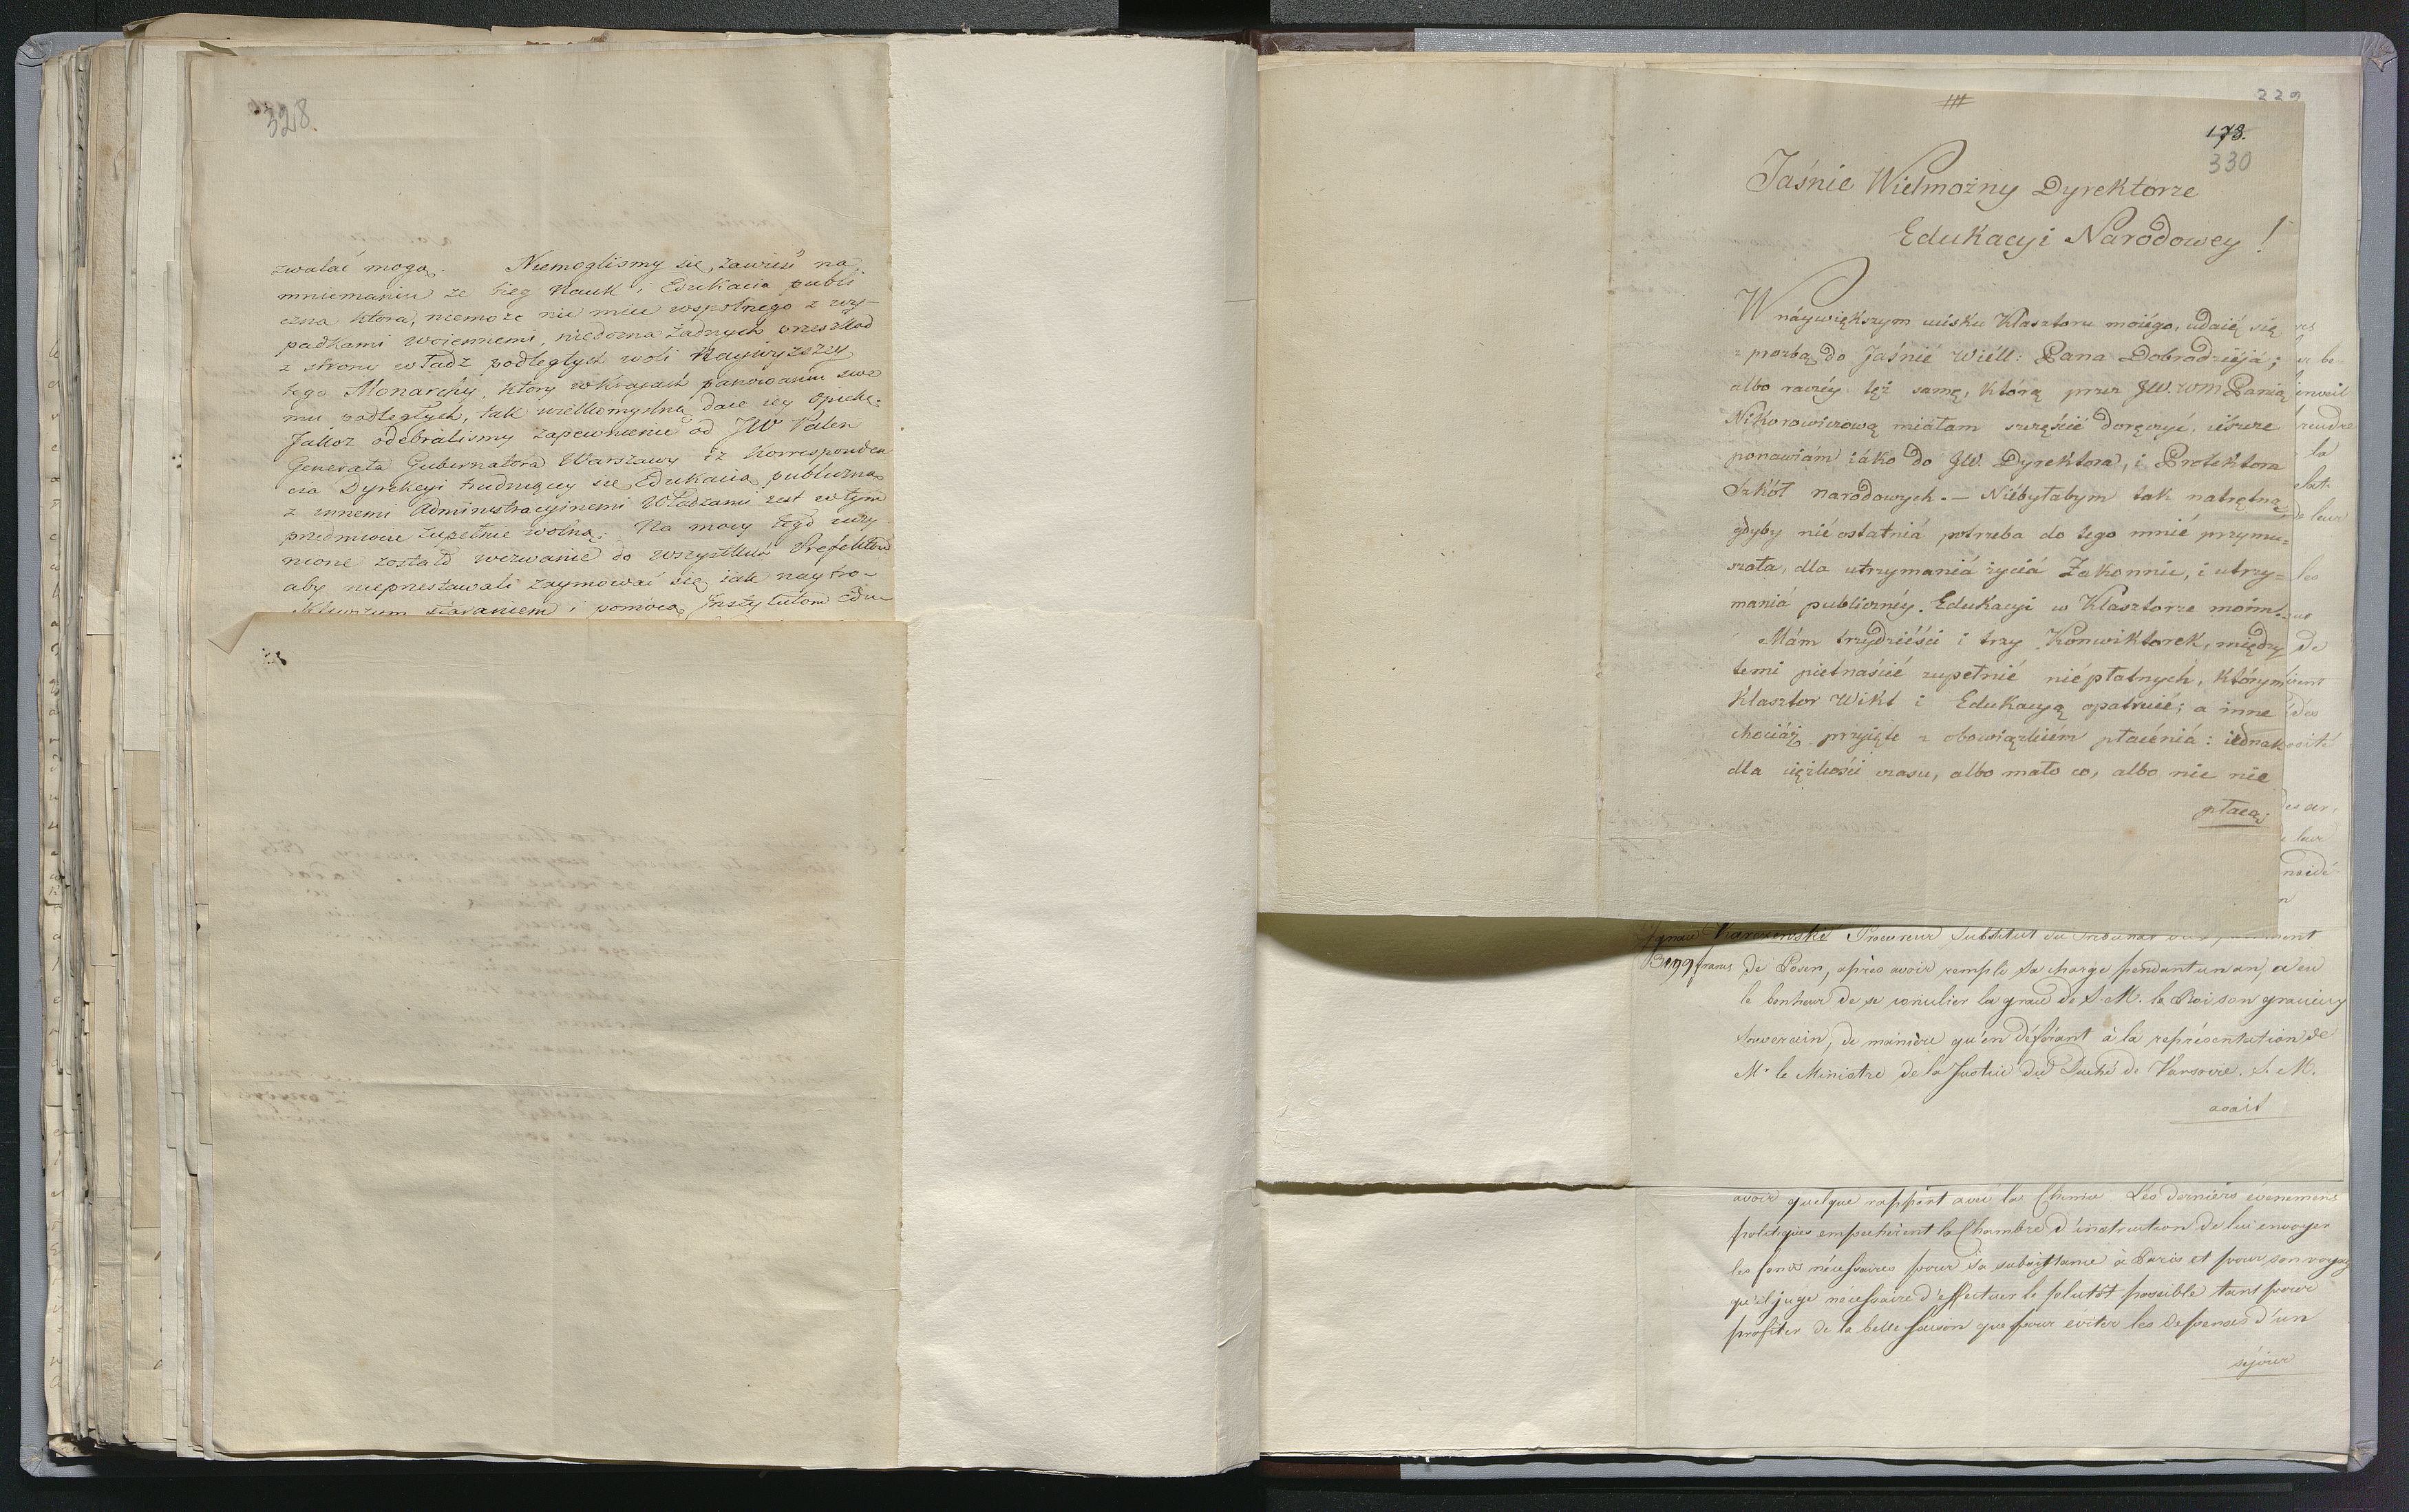 328.
zwalać mogą. Niemogliśmy się zawieść na
mniemaniu że bieg Nauk i Edukacia publi
czna ktora, niemoże nic mieć wspolnego z wy-
padkami woiennemi, niedozna żadnych przeszkod
z strony władz podległych woli Naywyższey
tego Monarchy, ktory w krajach panowaniu swe
mu podległych, tak wielkomyslną daie iey opiekę.
Jakoż odebralismy zapewnienie od JW
Generała Gubernatora Warszawy iż Korresponden
cia Dyrekcyi trudniącey się Edukacią publiczną
z innemi Administracyinemi Władzami iest w tym
przedmiocie zupełnie wolną. Na mocy tego uczy
nione zostało wezwanie do wszystkich Prefektow
aby nieprzestawali zaymować się iak naytro-
skliwszym staraniem i pomocą Instytutow Edu-
329
173.
330
Jaśnie Wielmożny Dyrektorze
Edukacyi Narodowey!
W náywiększym ucisku Klasztoru moiégo, udaię się
z prozbą do Jaśnié Wiélł: Pana Dobrodzieja;
albo raczéy tęż samę, którą przez JW. WM. Panią
Nikorowiczową miałam szczęście doręczyć, ieszcze
ponawiám iáko do JW. Dyrektora, i Protektora
Szkół narodowych. — Niébyłabym tak natrętną,
gdyby nié ostatniá potrzeba do tego mnié przymu=
szała, dla utrzymaniá życiá Zakonnic, i utrzy=
maniá publicznéy Edukacyi w Klasztorze moim.
Mám trzydzieści i trzy Konwiktorek, między
temi piętnaście zupełnié niépłatnych, którym
Klasztor Wikt i Edukacyą opatruié; a inne
chociáż przyięte z obowiązkiém płacéniá: iednak
dla ciężkości czasu, albo mało co, albo nic nie
płacą;
Karczewski Procureur Substitut du Tribunal
3199 francs de Posen, après avoir rempli sa charge pendant un an, a eu
le bonheur de se concilier la grace de S. M. le Roi son gracieux
Souverain, de manière qu'en déférant à la représentation de
Mr le Ministre de la Justice du Duché de Varsovie. S. M.
avait
avoir quelque rapport avec la Chimie Les derniers évenemens
politiques empechèrent la Chambre d'instruction de lui envoyer
les fonds nécessaires pour sa subsistance à Paris et pour son voyage
qu'il juge necessaire d'effectuer le plutôt possible tant pour
profiter de la belle saison que pour éviter les depenses d'un
séjour